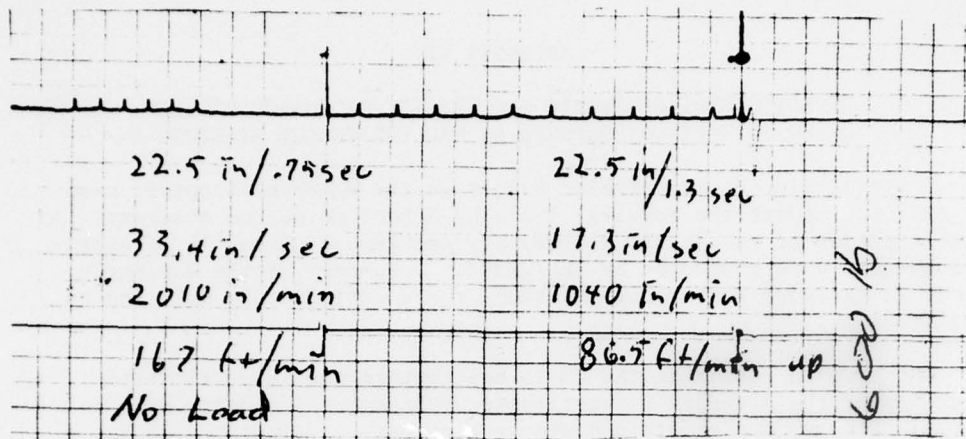 22.5 in/.75sec
33.4 in/sec
2010 in/min
167 ft/min
No Load
22.5 in/1.3 sec
17.3 in/sec
1040 in/min
86.5 ft/min up
600 lb